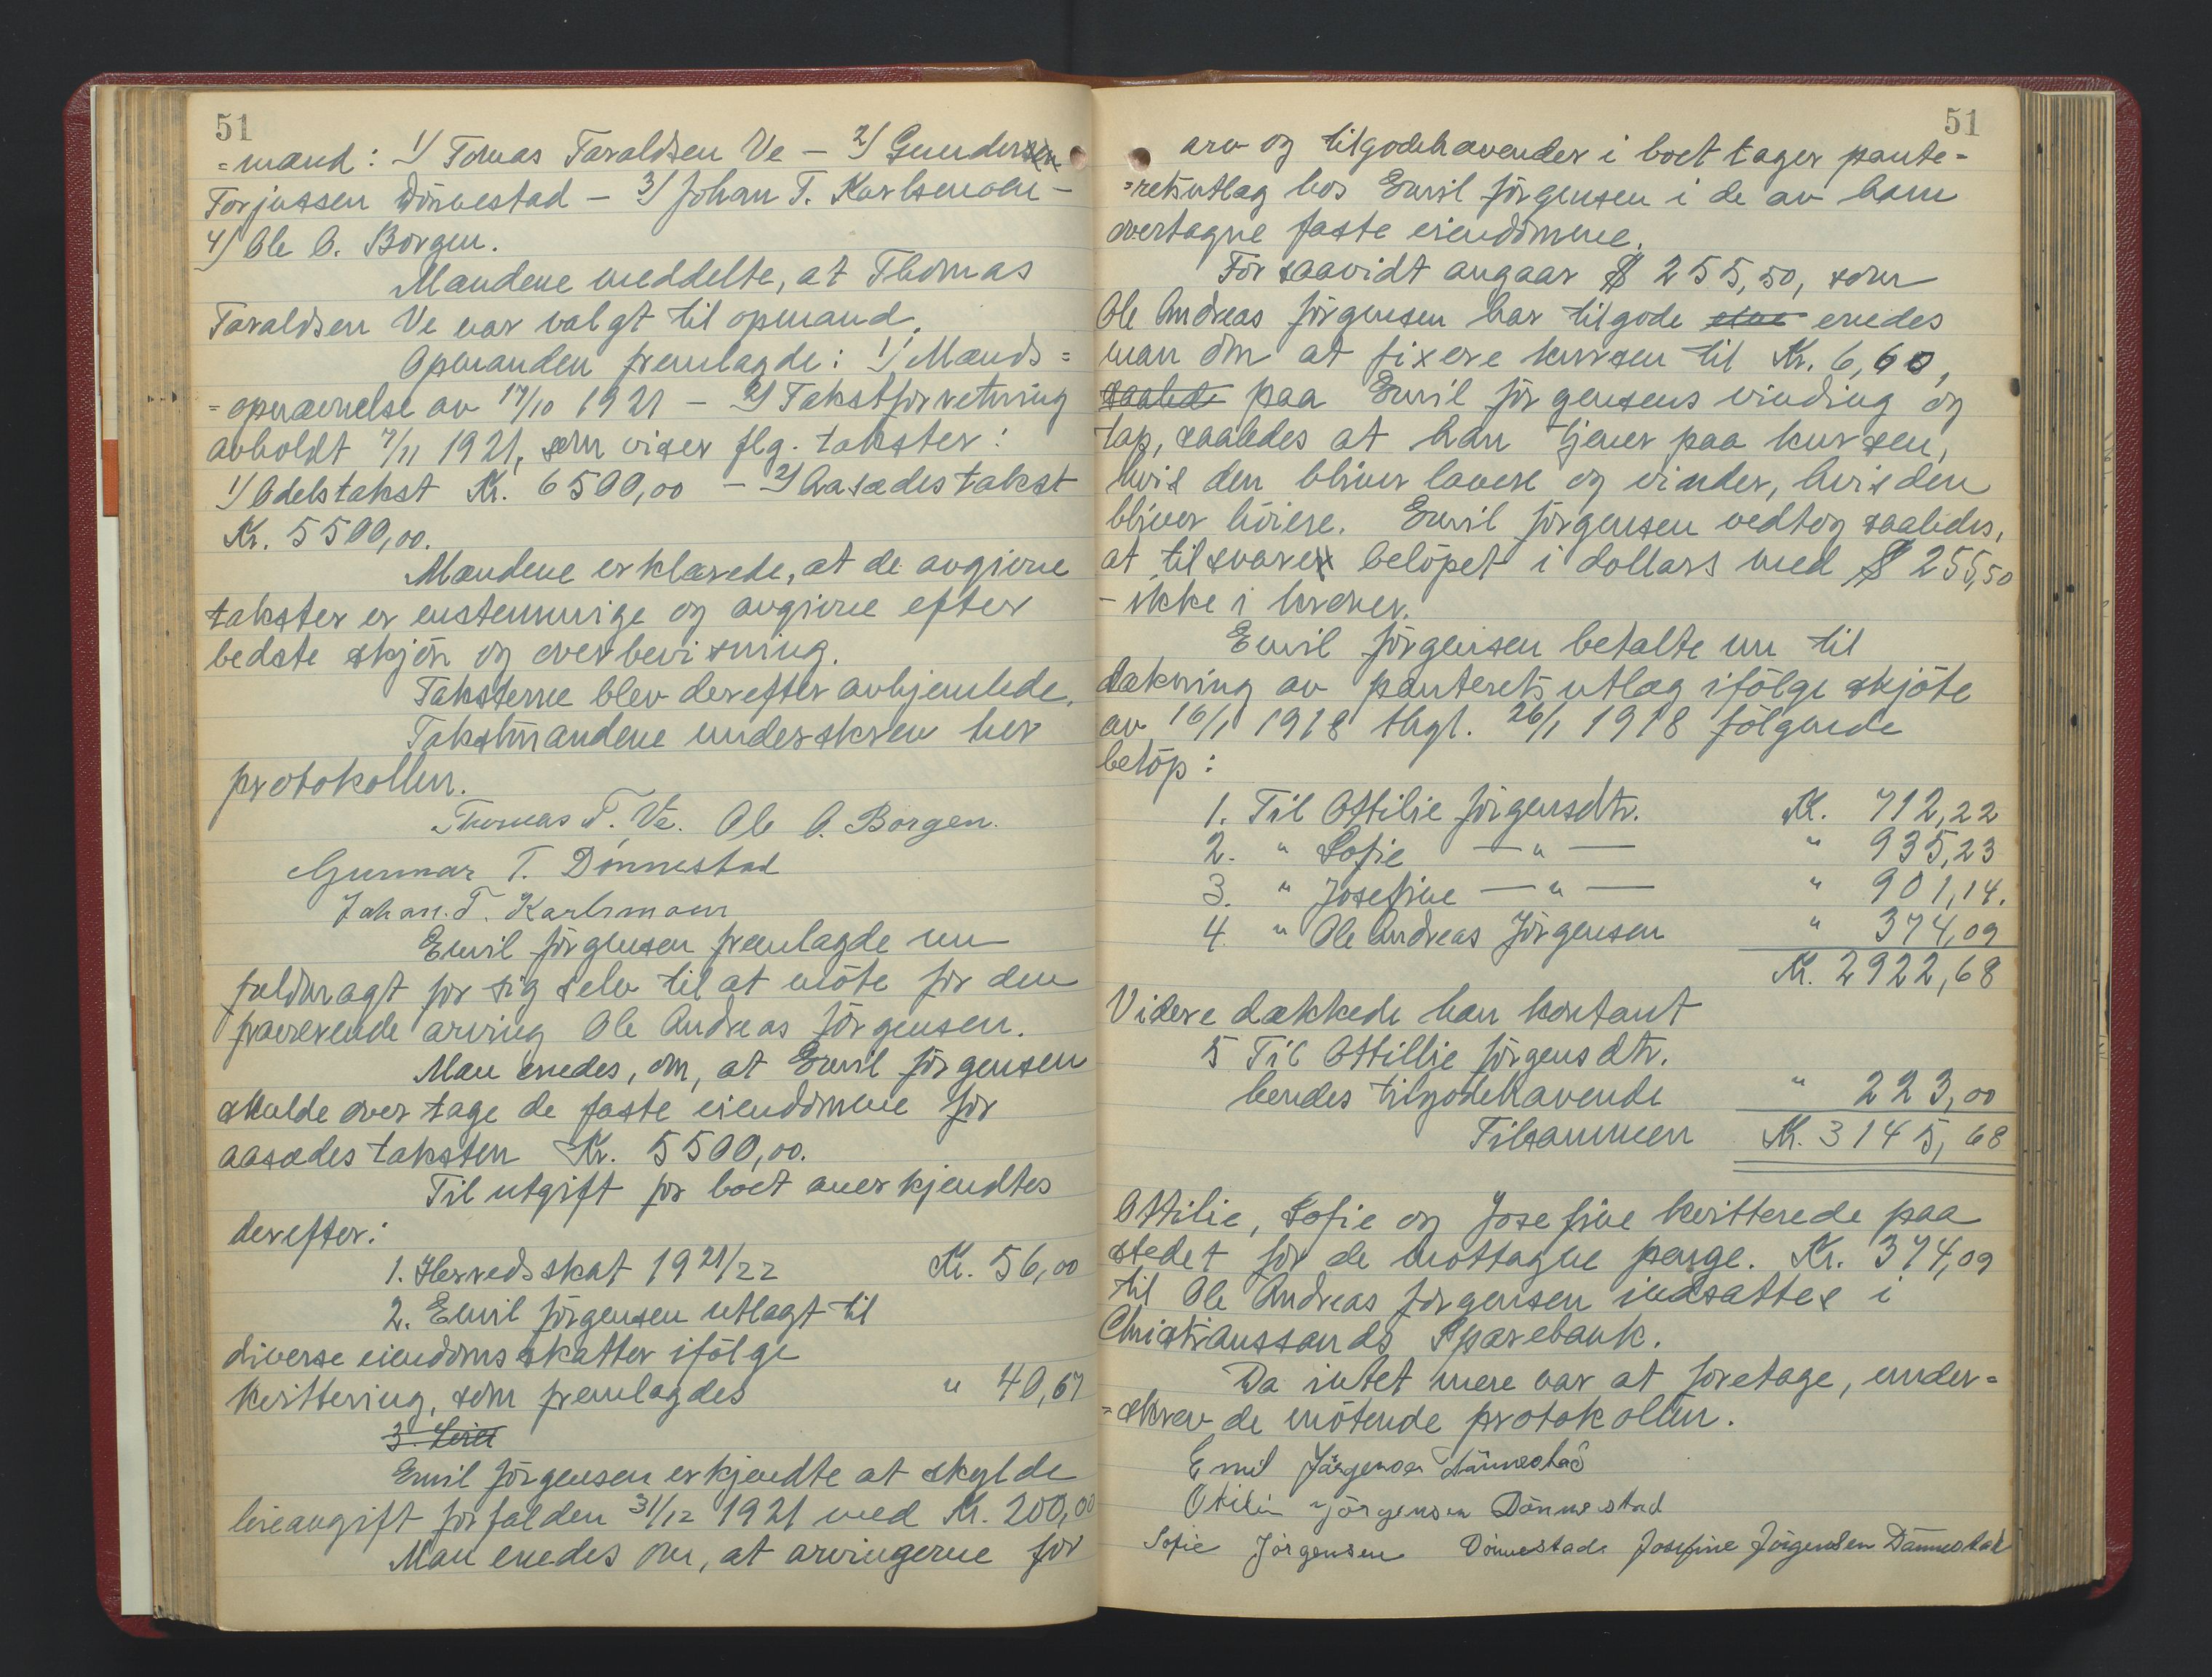 51
=mænd: 1) Tomas Taraldsen Ve – 2) Gunder
Torjussen Dönnestad – 3) Johan T. Karlsmoen –
4) Ole O. Borgen.
Mændene meddelte, at Thomas
Taraldsen Ve var valgt til opmand.
Opmanden fremlagde: 1) Mænds=
=opnævnelse av 17/10 1921 – 2) Takstforretning
avholdt 7/11 1921, som viser flg. takster:
1) Odelstakst Kr. 6500,00 – 2) Aasædestakst
Kr. 5500,00.
Mændene erklærede, at de avgivne
takster er enstemmige og avgivne efter
bedste skjön og overbevisning.
Taksterne blev derefter avhjemlede.
Takstmændene underskrev her
protokollen.
Thomas T. Ve. Ole O. Borgen.
Gunnar T. Dönnestad
Johan. T. Karlsmoen
Emil Jörgensen fremlagde nu
fuldmagt for sig selv til at möte for den
fraværende arving Ole Andreas Jörgensen.
Man enedes, om, at Emil Jörgensen
skulde overtage de faste eiendomme for
aasædestaksten Kr. 5500,00.
Til utgift for boet anerkjendtes
derefter:
1. Herredsskat 1921/22 Kr. 56,00
2. Emil Jörgensen utlagt til
diverse eiendomsskatter ifölge
kvittering, som fremlagdes " 40,67
3. Leiet
Emil Jörgensen erkjendte at skylde
leieavgift forfalden 31/12 1921 med Kr. 200,00
Man enedes om, at arvingerne for
51
arv og tilgodehavender i boet tager pante=
=retsutlæg hos Emil Jörgensen i de av ham
overtagne faste eiendomme.
For saavidt angaar $ 255,50, som
Ole Andreas Jörgensen har tilgode enedes
man om at fixere kursen til Kr. 6,60,
saaled paa Emil Jörgensens vinding og
tap, saaledes at han tjener paa kursen,
hvis den bliver lavere og vinder, hvis den
bliver höiere. Emil Jörgensen vedtog saaledes,
at tilsvare belöpet i dollars med $ 255,50
– ikke i kroner.
Emil Jörgensen betalte nu til
dækning av panteretsutlæg ifölge skjöte
av 16/1 1918 thgl. 26/1 1918 fölgende
belöp:
1. Til Ottilie Jörgensdtr. Kr. 712,22
2. " Sofie — " — " 935,23
3. " Josefine — " — " 901,14.
4. " Ole Andreas Jörgensen " 374,09
Kr. 2922,68
Videre dækkede han kontant
5 Til Ottillie Jörgensdtr.
hendes tilgodehavende " 223,00
Tilsammen Kr. 3145,68
Ottilie, Sofie og Josefine kvitterede paa
stedet for de mottagne penge. Kr. 374,09
til Ole Andreas Jörgensen indsattes i
Christianssands Sparebank.
Da intet mere var at foretage, under=
=skrev de mötende protokollen.
Emil Jörgensen Dönnestad
Otilie Jörgensen Dönnestad
Sofie Jörgensen Dönnestad. Josefine Jörgensen Dönnestad